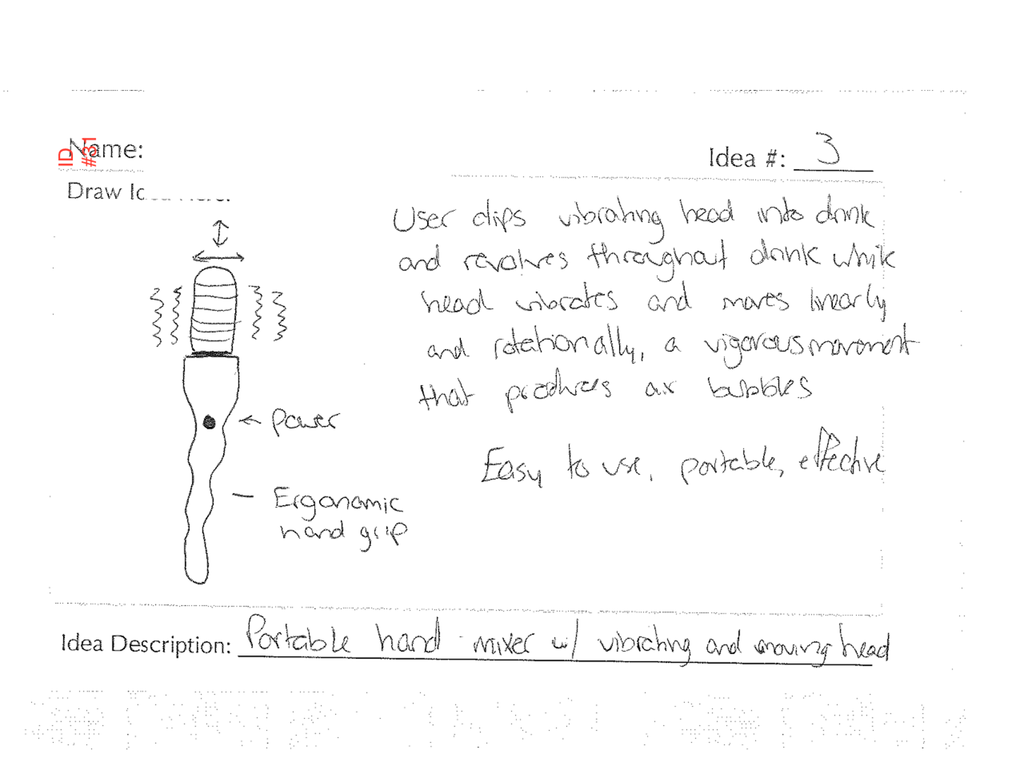 Name:
ID
#31
Idea #: 3
User dips vibrating head into drink
and revolves throughout drink while
head vibrates and moves linearly
and rotationally, a vigorous movement
that produces air bubbles
Easy to use, portable, effective
Power
Ergonomic
hand grip
Idea Description: Portable hand mixer w/ vibrating and moving head